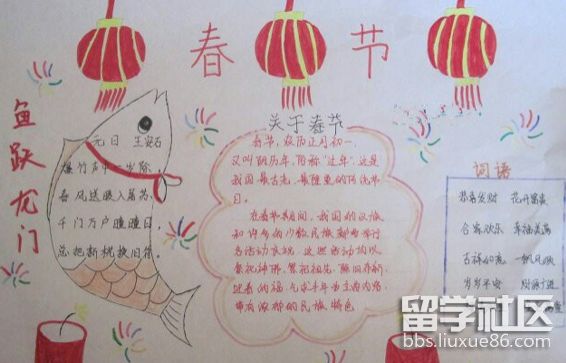 春 节
鱼跃龙门
元日 王安石
爆竹声中一岁除
春风送暖入屠苏
千门万户瞳瞳日,
总把新桃换旧符。
关于春节
春节,农历正月初一,
又叫阴历年,俗称"过年",这是
我国最古老、最隆重的传统节
日。
在春节期间,我国的汉族
和许多的少数民族都要举行
各活动庆祝,这些活动均以
祭祀神佛、祭把祖先、除旧布新、
迎春的福、气求丰年为主要内容,
带有浓郁的民族特色
词语
恭喜发财 花开富贵
合家欢乐 幸福美满
吉祥如意 一帆风顺
岁岁平安 财源广进
留学社区
bbs.liuxue86.com